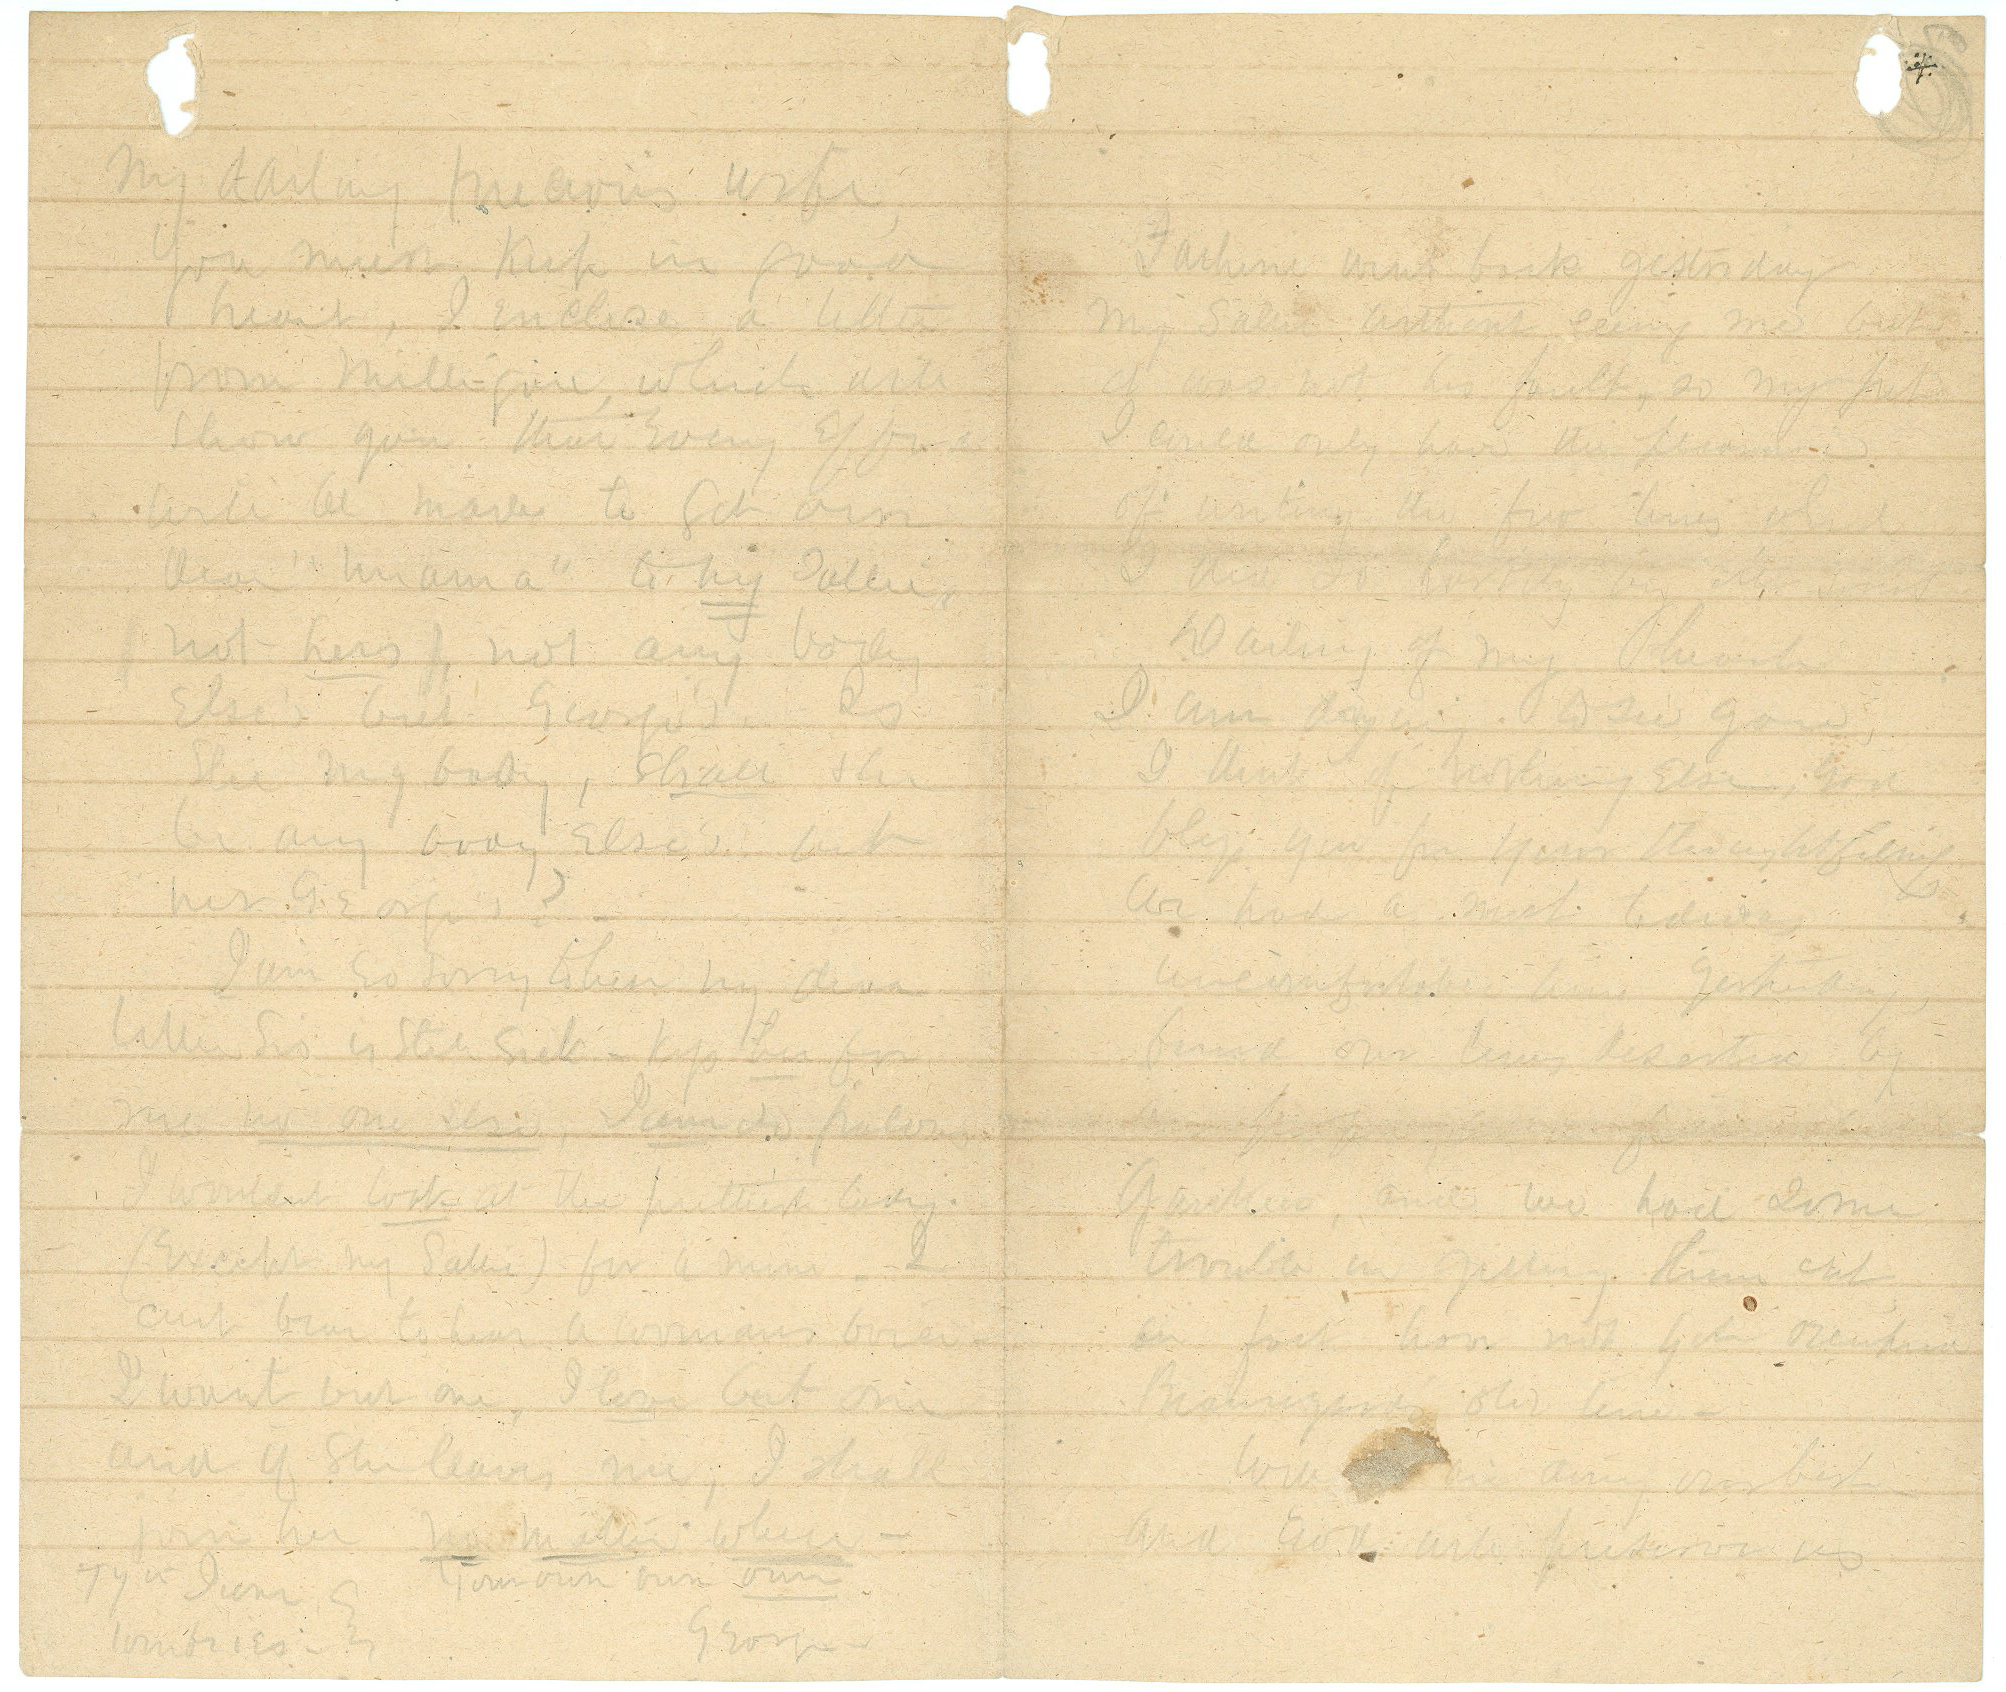 My darling precious wife,
You must keep in good
heart, I enclose a letter
from Milligan, which will
show you that Every Effort
will be made to get our
dear "Mama" to my Sallie,
(not hers), not any body
Else's but George's. Is
She my body, shall she
be any body Else's but
her George's?
I am so sorry to hear my dear
little Sis is still sick - Kiss her for
me no one else, I am so
I wouldn't look at the prettiest lady
(Except my Sallie) for a mine. I
cant bear to hear a womans voice -
I want but one, I love but one
and if She leaves me, I shall
join her no matter where -
Your own own own
George
Father went back yesterday
My Sallie without seeing me but
it was not his fault, so my pet
I could only have the pleasure
of writing the few lines which
I did so hastily by
Darling of my heart
I am dying to see you,
I think of nothing Else, God
bless you for your thoughtfulness
We had a most tedious,
uncomfortable time yesterday,
found our lines deserted by
Yankees, and we had some
trouble in getting them out,
in fact have not yet occupied
Beauregard's old line -
We are doing our best
And God will preserve us